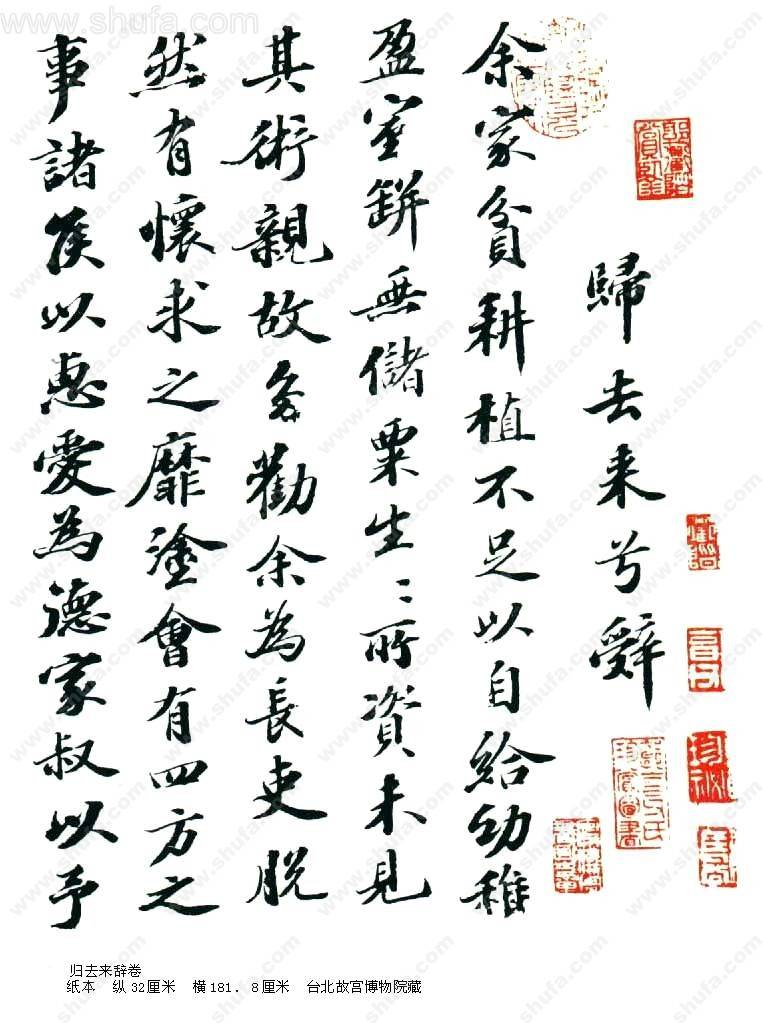 www.shufa.com
歸去来兮辭
余家貧耕植不足以自給幼稚
盈室缾無儲粟生〻所資未見
其術親故多勸余為長吏脱
然有懷求之靡塗會有四方之
事諸侯以惠愛為德家叔以予
归去来辞卷
纸本 纵32厘米 横181．8厘米 台北故宫博物院藏